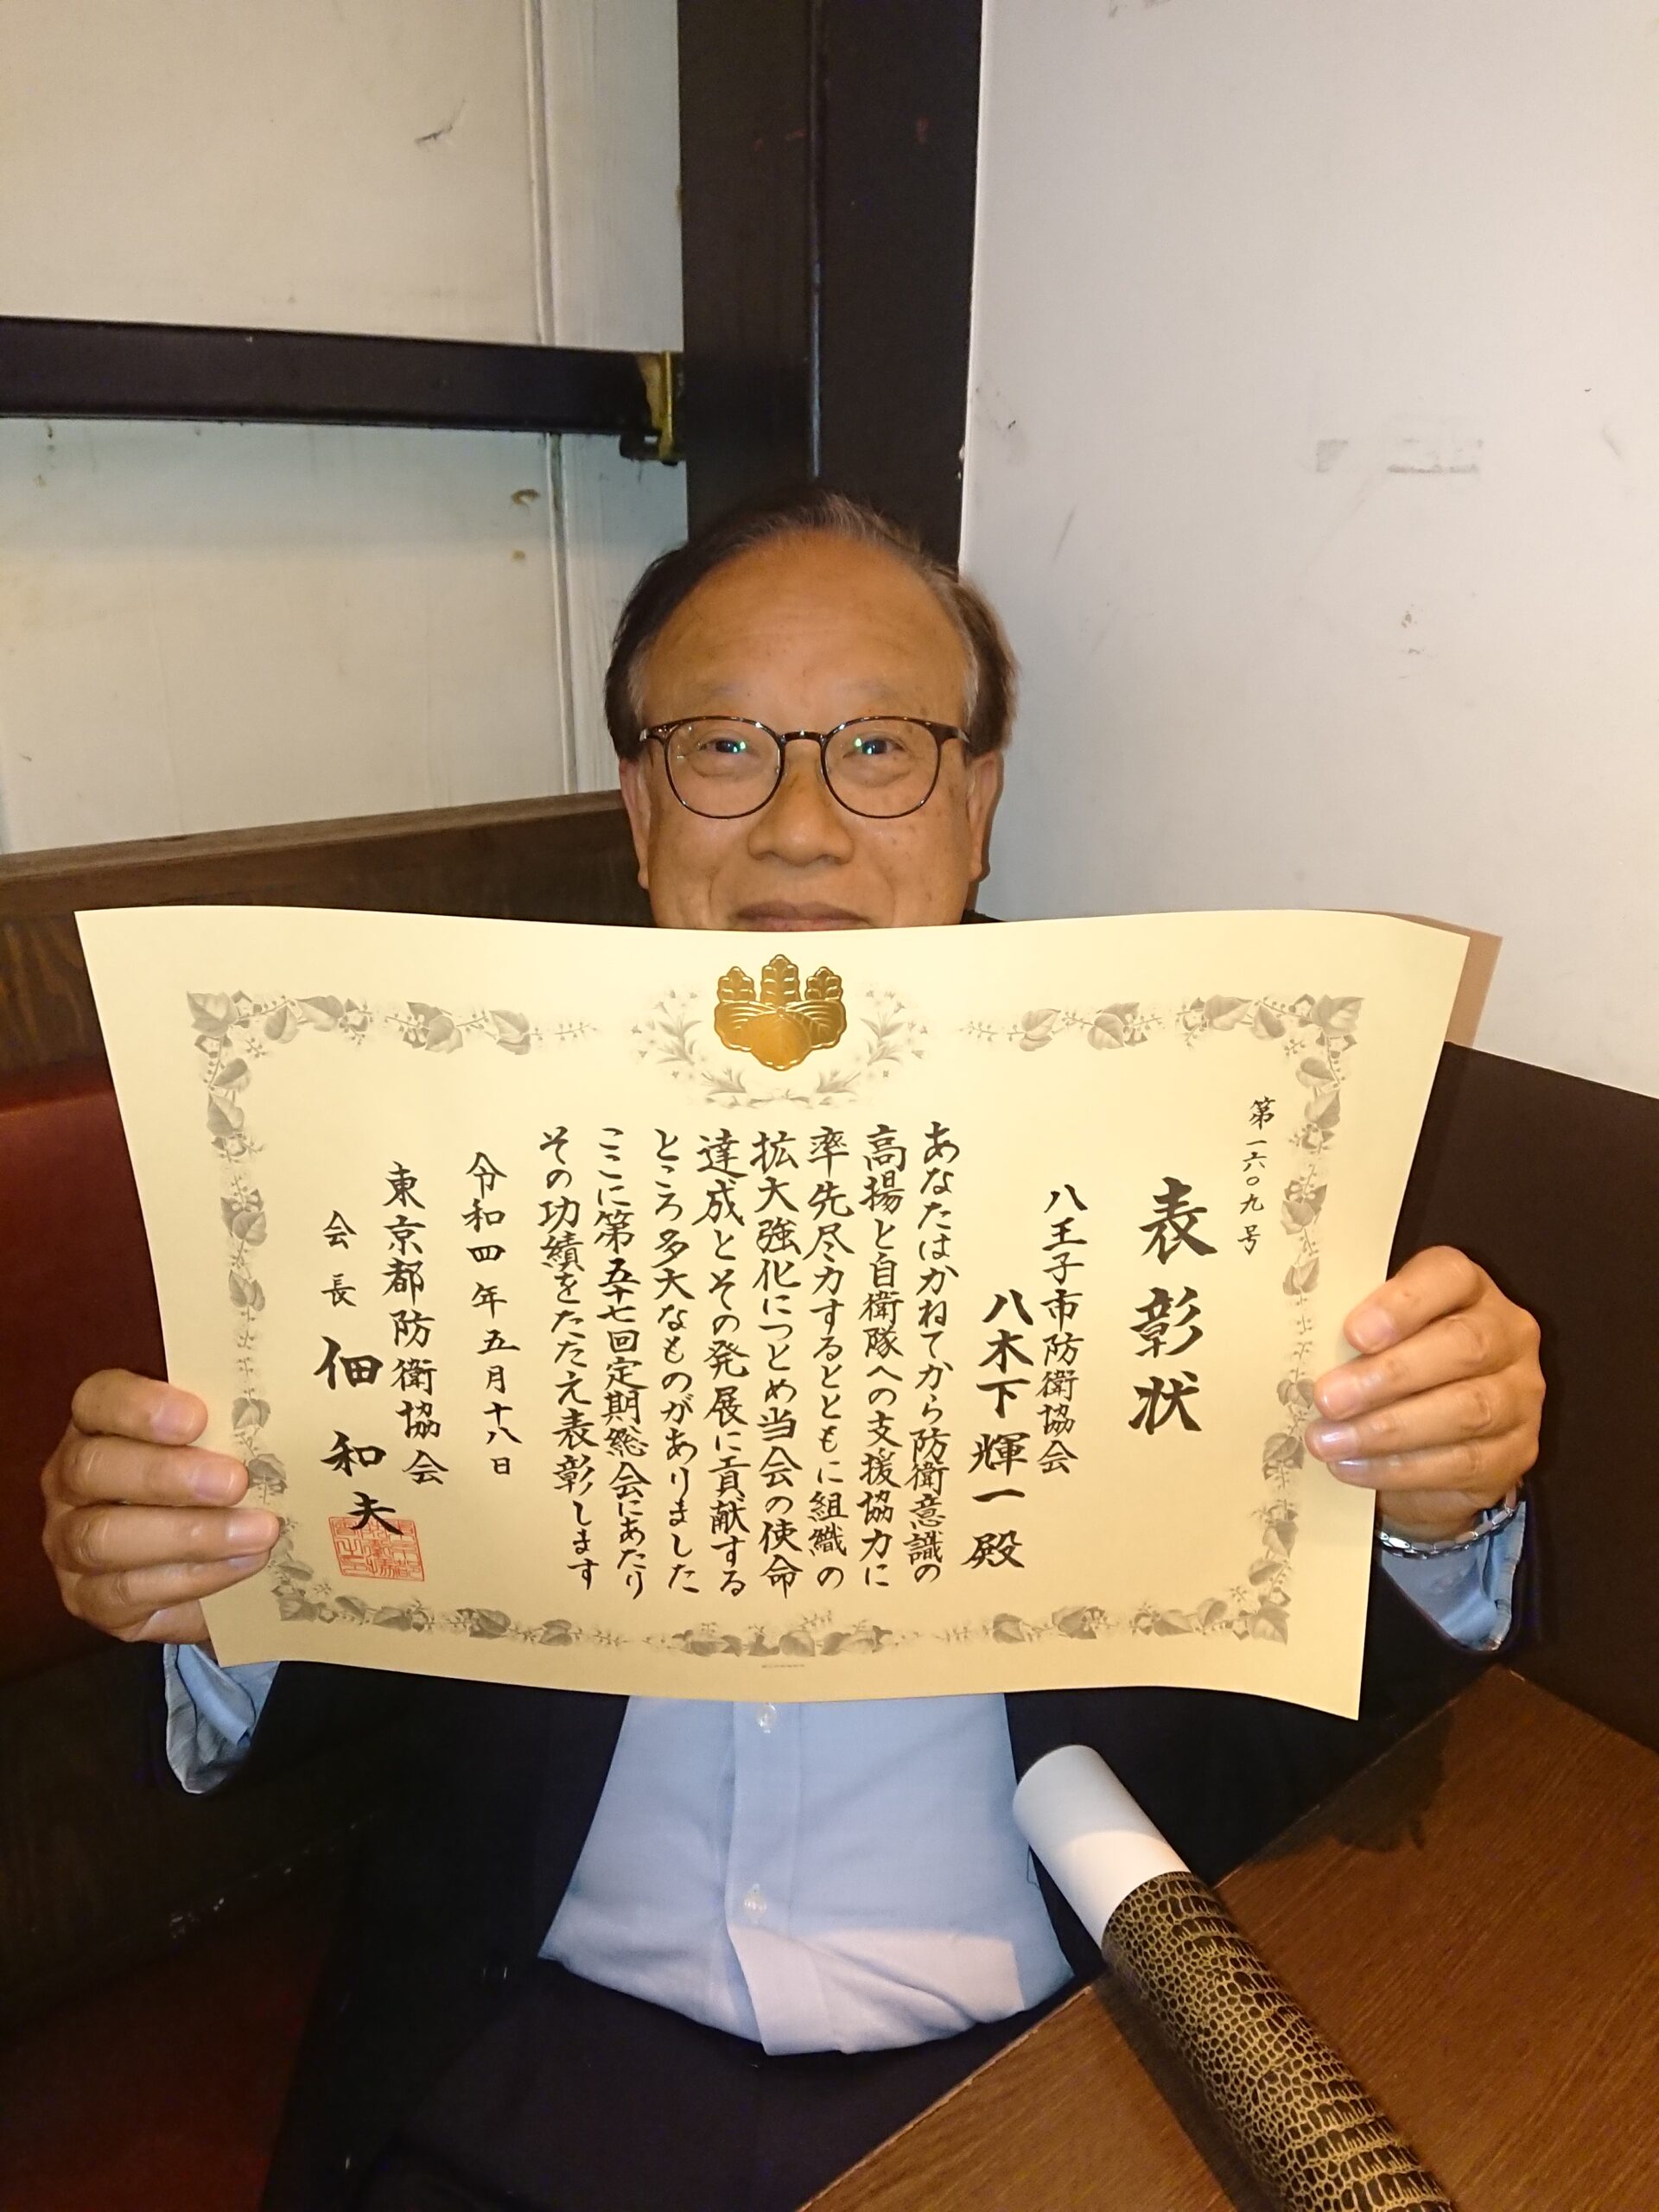 第一六〇九号
表彰状
八王子市防衛協会
八木下輝一殿
あなたはかねてから防衛意識の
高揚と自衛隊への支援協力に
率先尽力するとともに組織の
拡大強化につとめ当会の使命
達成とその発展に貢献する
ところ多大なものがありました
ここに第五十七回定期総会にあたり
その功績をたたえ表彰します
令和四年五月十八日
東京都防衛協会
会長 佃和夫